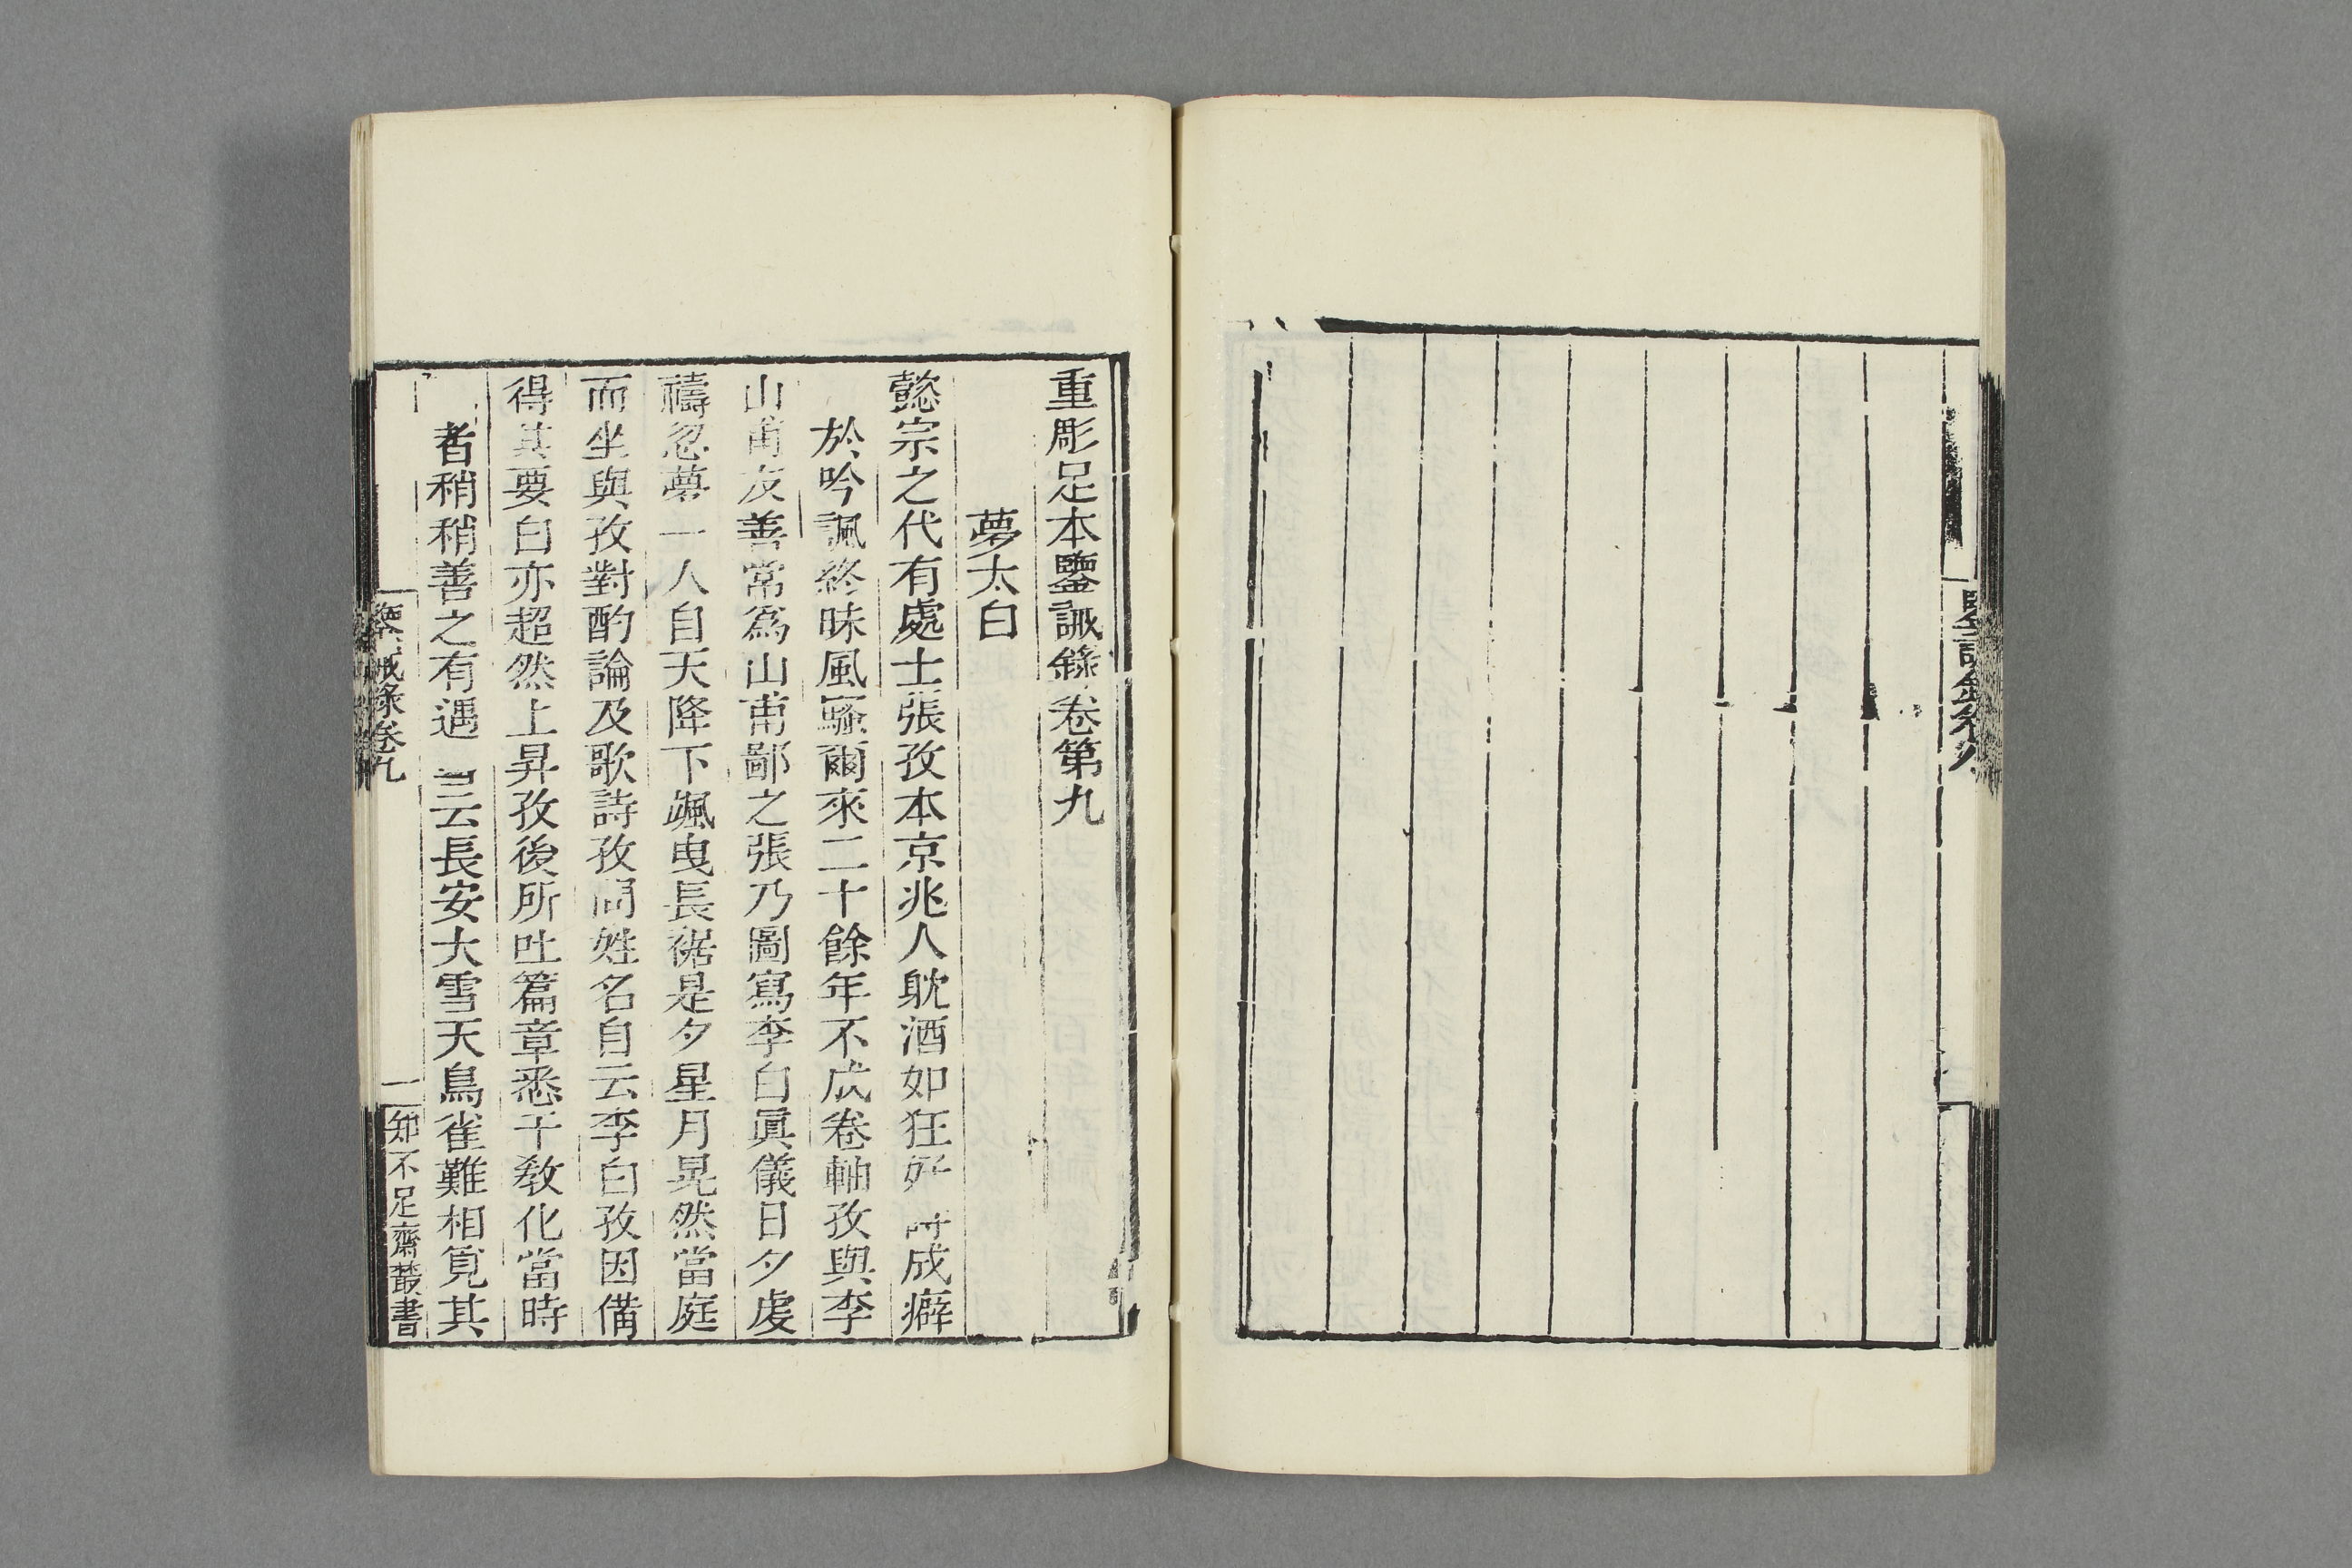 鑒誡錄卷八
重彫足本鑒誡錄卷第九
夢太白
懿宗之代有處士張孜本京兆人躭酒如狂好詩成癖
於吟諷終昧風騷爾來二十餘年不成卷軸孜與李
山甫友善常爲山甫鄙之張乃圖寫李白眞儀日夕虔
禱忽夢一人自天降下颯曳長裾是夕星月晃然當庭
而坐與孜對酌論及歌詩孜問姓名自云李白孜因備
得其要白亦超然上昇孜後所吐篇章悉干教化當時
者稍稍善之有遇云長安大雪天鳥雀難相覓其
鑒誡錄卷九
一
知不足齋叢書